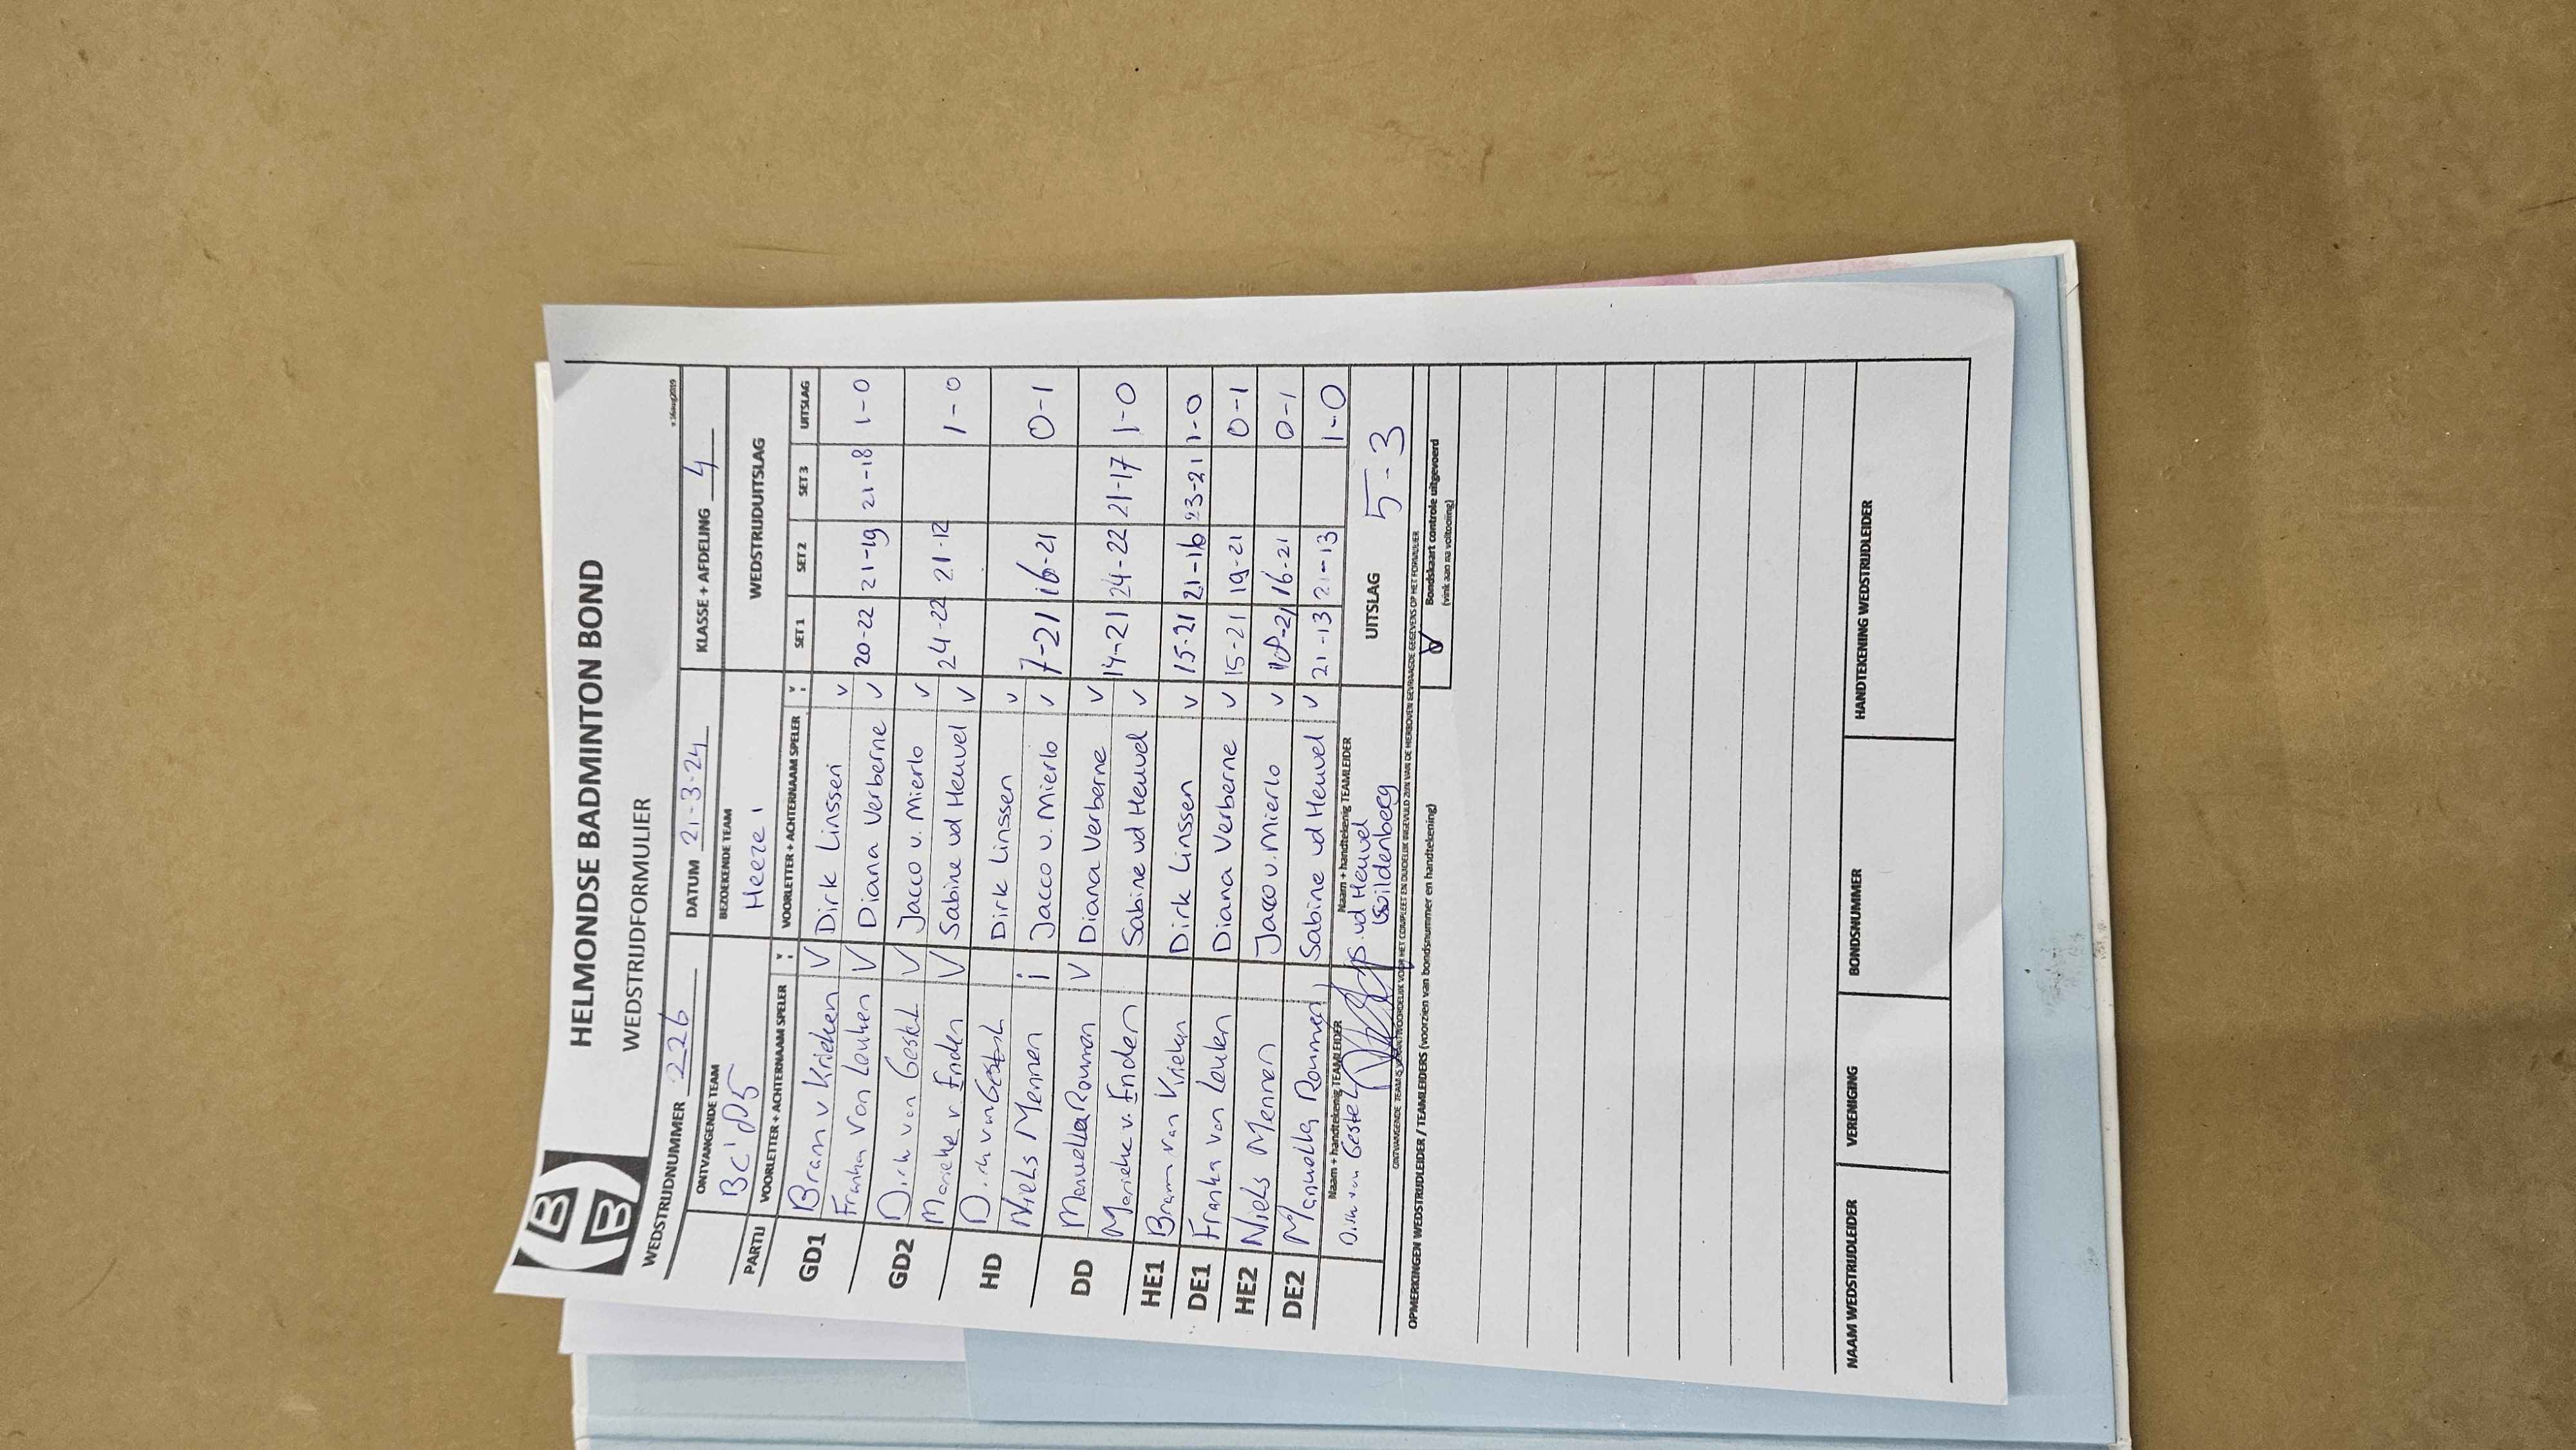 HELMONDSE BADMINTON BOND
WEDSTRIJDFORMULIER
v.16aug2019
WEDSTRIJDNUMMER 226 DATUM 21-3-24 KLASSE + AFDELING 4
ONTVANGENDE TEAM BEZOEKENDE TEAM WEDSTRIJDUITSLAG
Heeze 1
PARTIJ VOORLETTER + ACHTERNAAM SPELER V VOORLETTER + ACHTERNAAM SPELER V SET 1 SET 2 SET 3 UITSLAG
GD1 Bram v Krieken V Dirk Linssen v
Franka van Leuken V Diana Verberne v 20-22 21-19 21-18 1-0
GD2 Dirk van Gestel V Jacco v. Mierlo v
Marieke v. Enden V Sabine vd Heuvel v 24-22 21-12 1-0
HD Dirk van Gestel Dirk Linssen v
Niels Mennen Jacco v. Mierlo v 7-21 16-21 0-1
DD Manuella Roumen V Diana Verberne v
Marieke v. Enden Sabine vd Heuvel v 14-21 24-22 21-17 1-0
HE1 Bram van Krieken Dirk Linssen v 15-21 21-16 23-21 1-0
DE1 Franka van Leuken Diana Verberne v 15-21 19-21 0-1
HE2 Niels Mennen Jacco v. Mierlo v 18-21 16-21 0-1
DE2 Manuella Roumen Sabine vd Heuvel v 21-13 21-13 1-0
Naam + handtekenig TEAMLEIDER Naam + handtekenig TEAMLEIDER UITSLAG 5-3
Dirk van Gestel S. vd Heuvel
ONTVANGENDE TEAM IS VERANTWOORDELIJK VOOR HET COMPLEET EN DUIDELIJK INGEVULD ZIJN VAN DE HIERBOVEN GEVRAAGDE GEGEVENS OP HET FORMULIER
OPMERKINGEN WEDSTRIJDLEIDER / TEAMLEIDERS (voorzien van bondsnummer en handtekening)
V Bondskaart controle uitgevoerd
(vink aan na voltooiing)
NAAM WEDSTRIJDLEIDER VERENIGING BONDSNUMMER HANDTEKENING WEDSTRIJDLEIDER